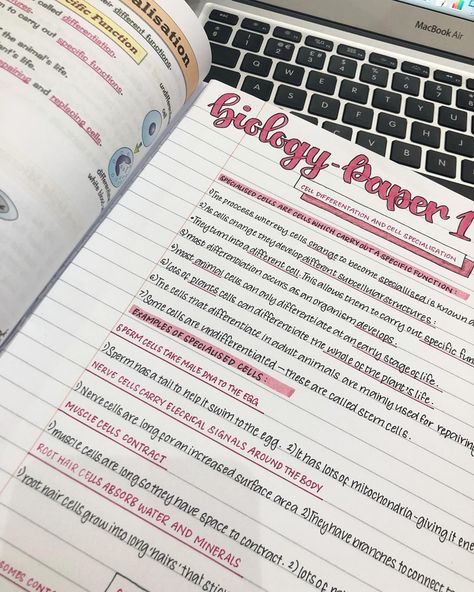 ialisation
ecific Function
their different functions.
called differentiation.
to carry out specific functions.
the animal's life.
plant's life.
repairing and replacing cells,
MacBook Air
biology - Paper 1
CELL DIFFERENTATION AND CELL SPECIALISATION
SPECIALISED CELLS ARE CELLS WHICH CARRY OUT A SPECIFIC FUNCTION:
1) The process where by cells change to become specialised is known a
2) As cells change they develop different subcellular structures:
• They turn into a different cell. This allows them to carry out specific fun
3) most differentiation occurs as an organism develops.
4) most animal cells can only differentiate at an early stage of life.
5) lots of plants cells can differentiate the whole of the plant's life.
6) The cells that differentiate in adult animals are mainly used for repairing
7) Some cells are undifferentiated - these are called stem cells.
EXAMPLES OF SPECIALISED CELLS:
SPERM CELLS TAKE MALE DNA TO THE EGG
1) Sperm has a tail to help it swim to the egg. 2) It has lots of mitochondria - giving it ene
NERVE CELLS CARRY ELECRICAL SIGNALS AROUND THE BODY
1) Nerve cells are long for an increased surface area. 2) They have branches to connect t
MUSCLE CELLS CONTRACT
1) muscle cells are long so they have space to contract. 2) lots of
ROOT HAIR CELLS ABSORB WATER AND MINERALS
1) root hair cells grow into long 'hairs' that stic